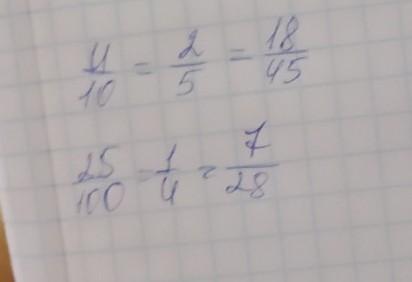 4/10 = 2/5 = 18/45
25/100 = 1/4 = 7/28